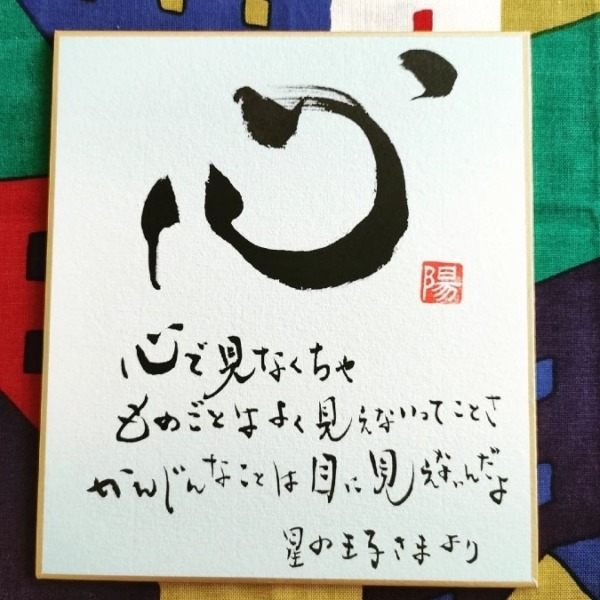 心
陽
心で見なくちゃ
ものごとはよく見えないってことさ
かんじんなことは目に見えないんだよ
星の王子さまより